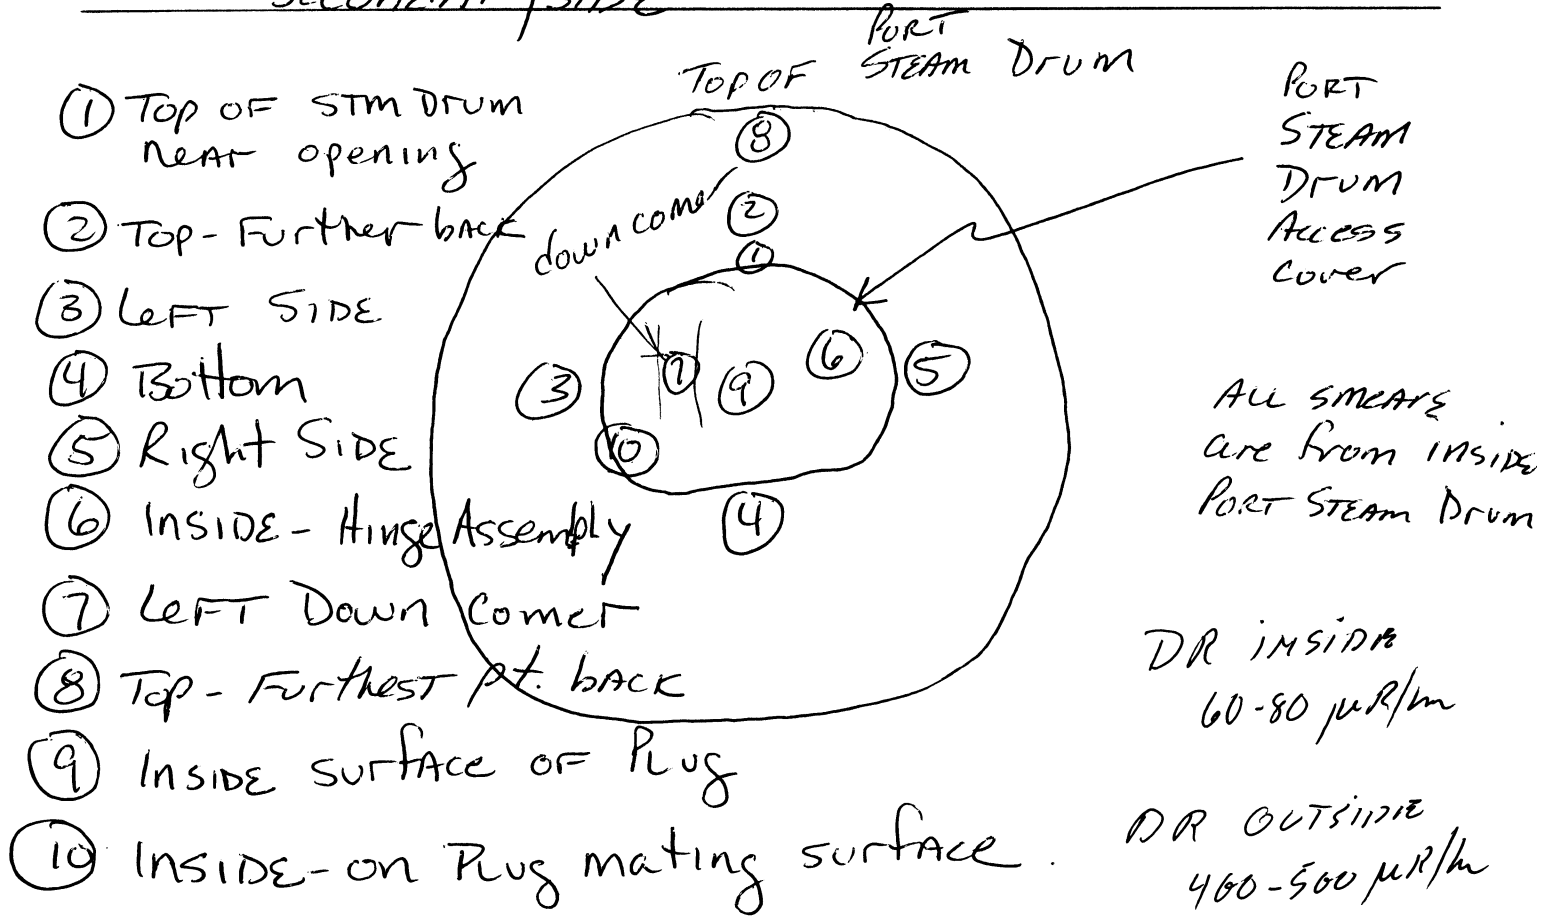 SECONDARY SIDE
TOP OF PORT
STEAM DRUM
① TOP OF STM DRUM
NEAR opening
② TOP - Further back
③ LEFT SIDE
④ Bottom
⑤ Right SIDE
⑥ INSIDE - Hinge Assembly
⑦ LEFT Down Comer
⑧ Top - Furthest pt. back
⑨ INSIDE surface OF PLUG
⑩ INSIDE - on PLUG mating surface.
down comer
⑧
②
①
③
⑦
⑨
⑥
⑤
⑩
④
PORT
STEAM
DRUM
Access
Cover
ALL smears
are from INSIDE
PORT STEAM Drum
DR INSIDE
60-80 µR/hr
DR OUTSIDE
400-500 µR/hr